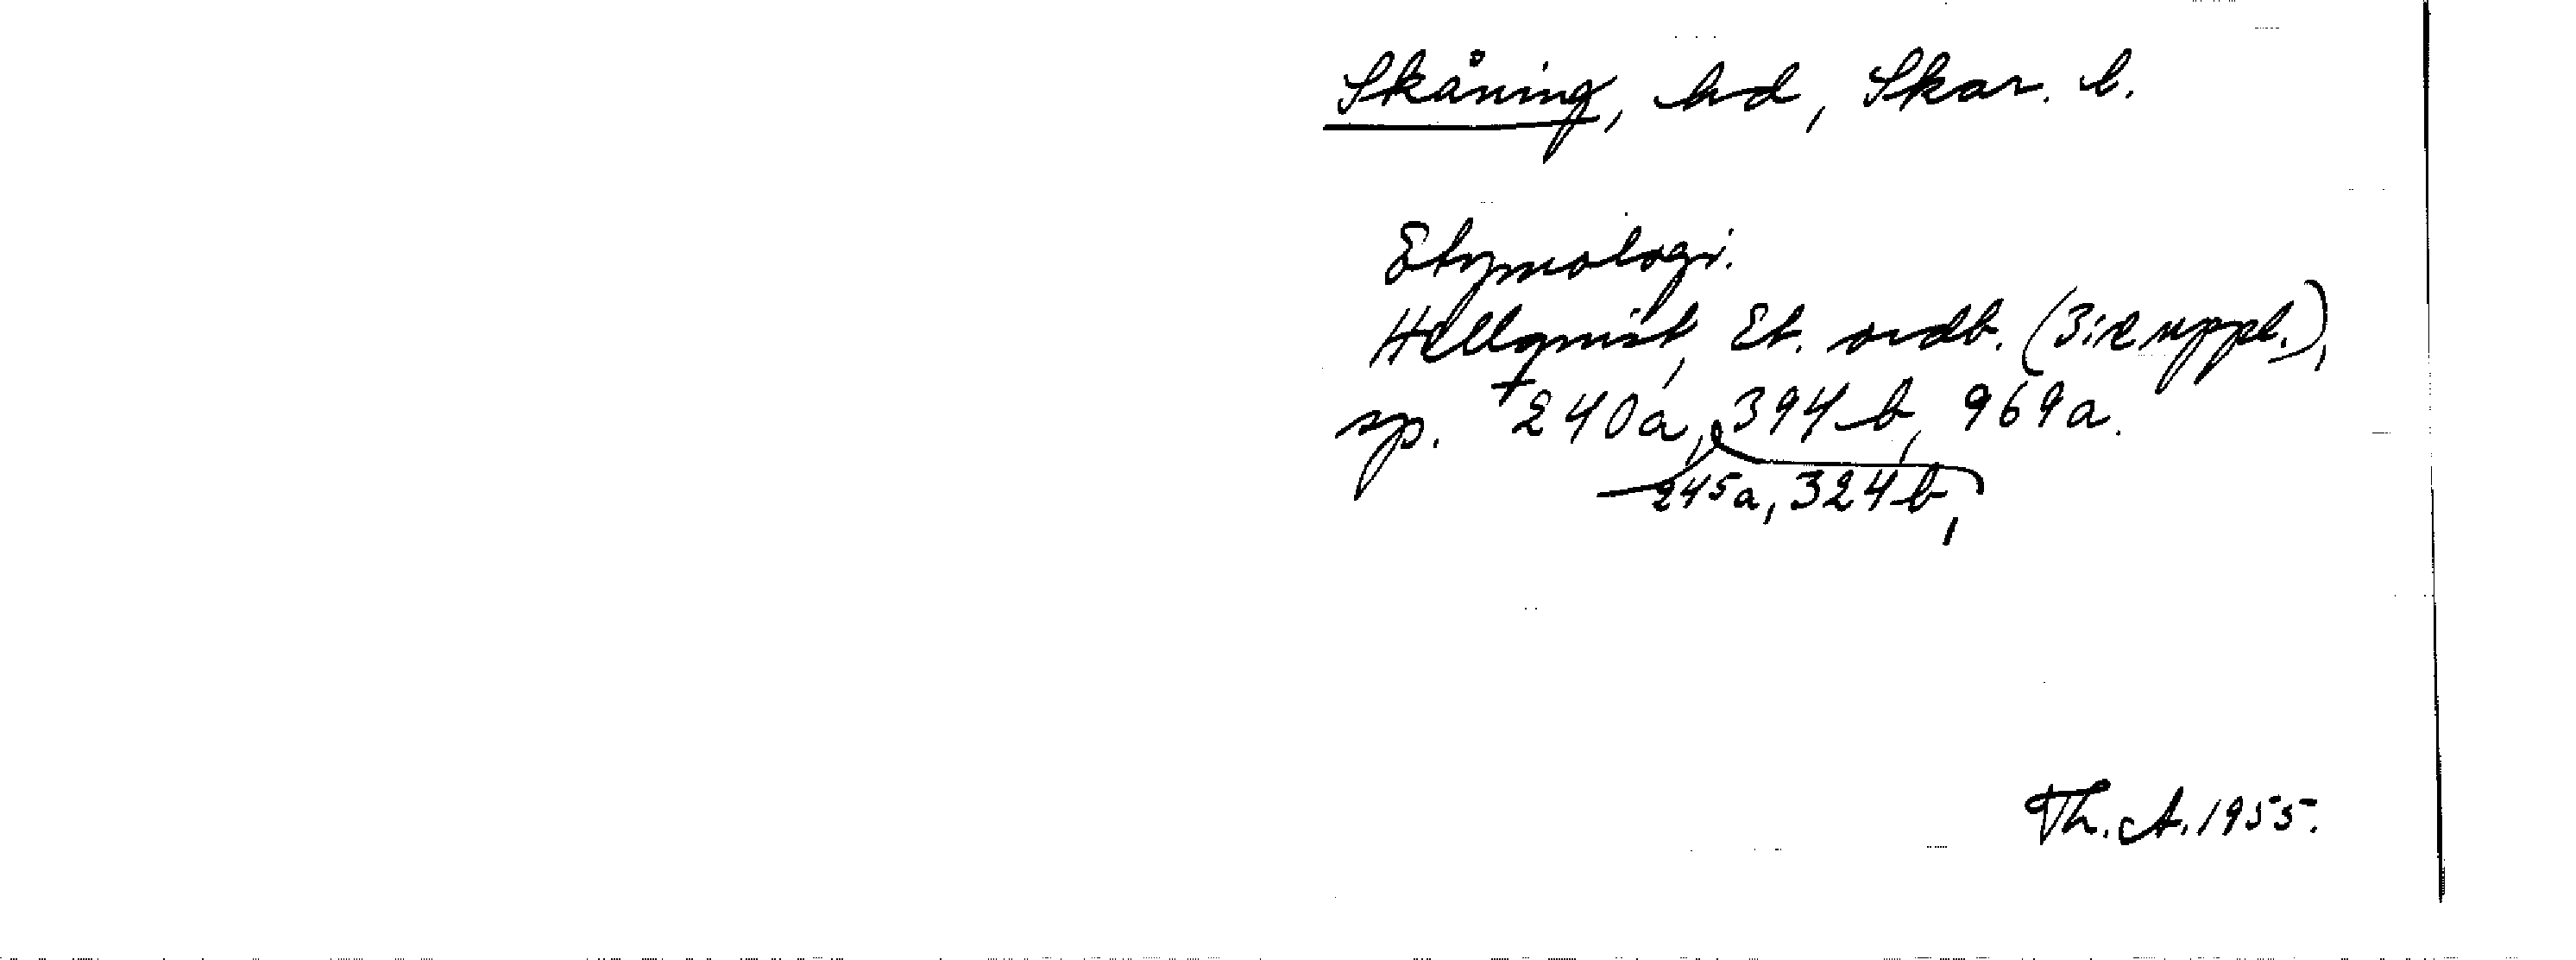 Skåning, hd, Skar. l.
Etymologi.
Hellquist, Et. ordb. (3:e uppl.),
sp. +240a, 394b, 969a.
245a, 324b,
Th. A. 1955.